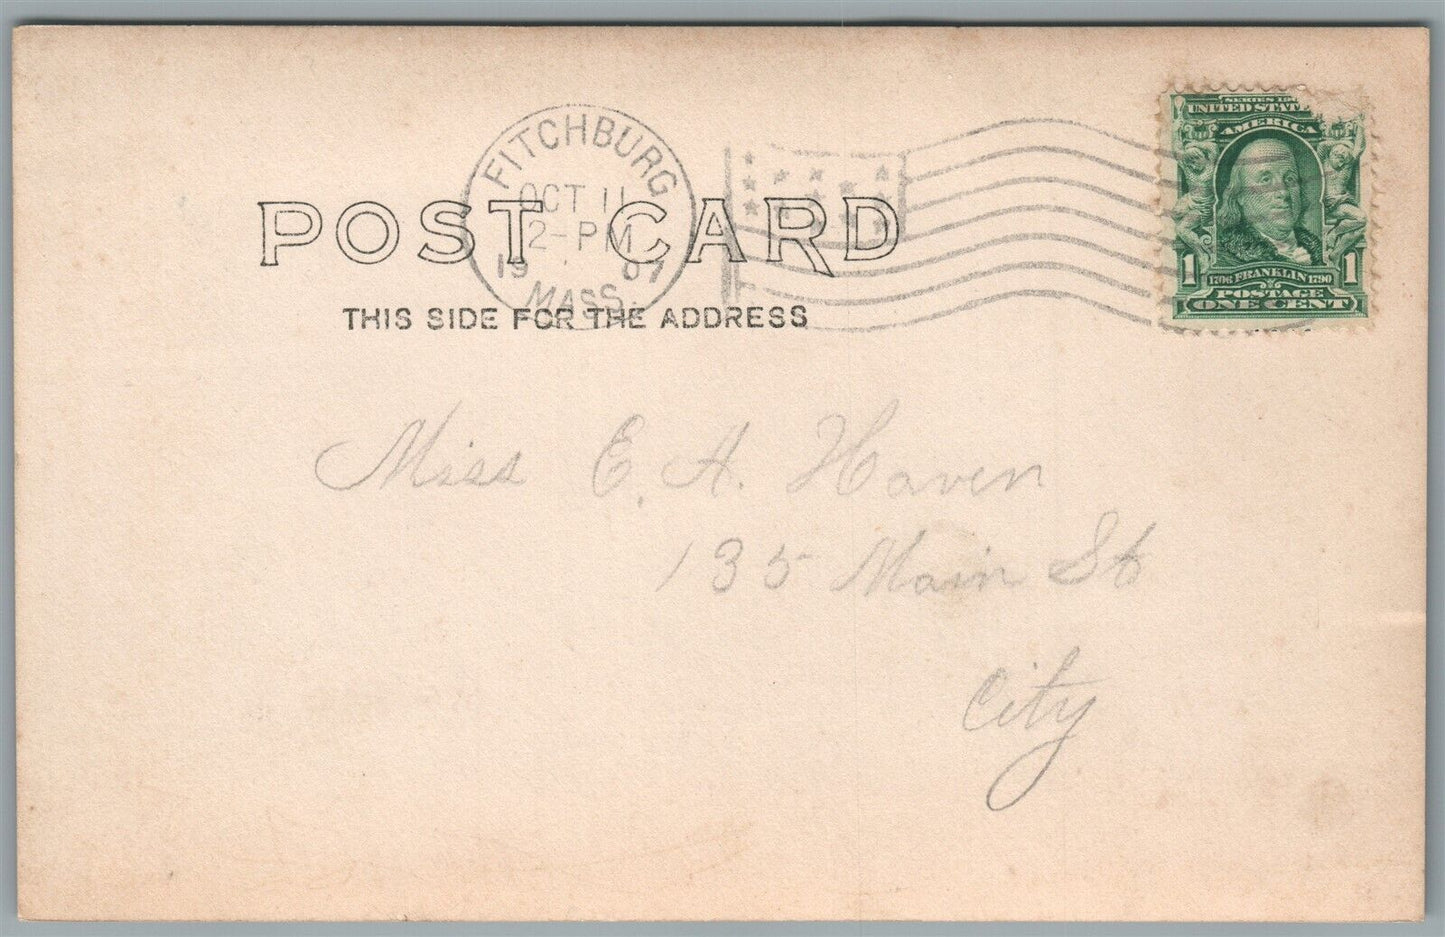 FITCHBURG
OCT 11
2-PM
19 07
MASS.
POST CARD
THIS SIDE FOR THE ADDRESS
SERIES 190
UNITED STATE
AMERICA
1 1706 FRANKLIN 1790 1
POSTAGE
ONE CENT
Miss E. A. Haven
135 Main St
City